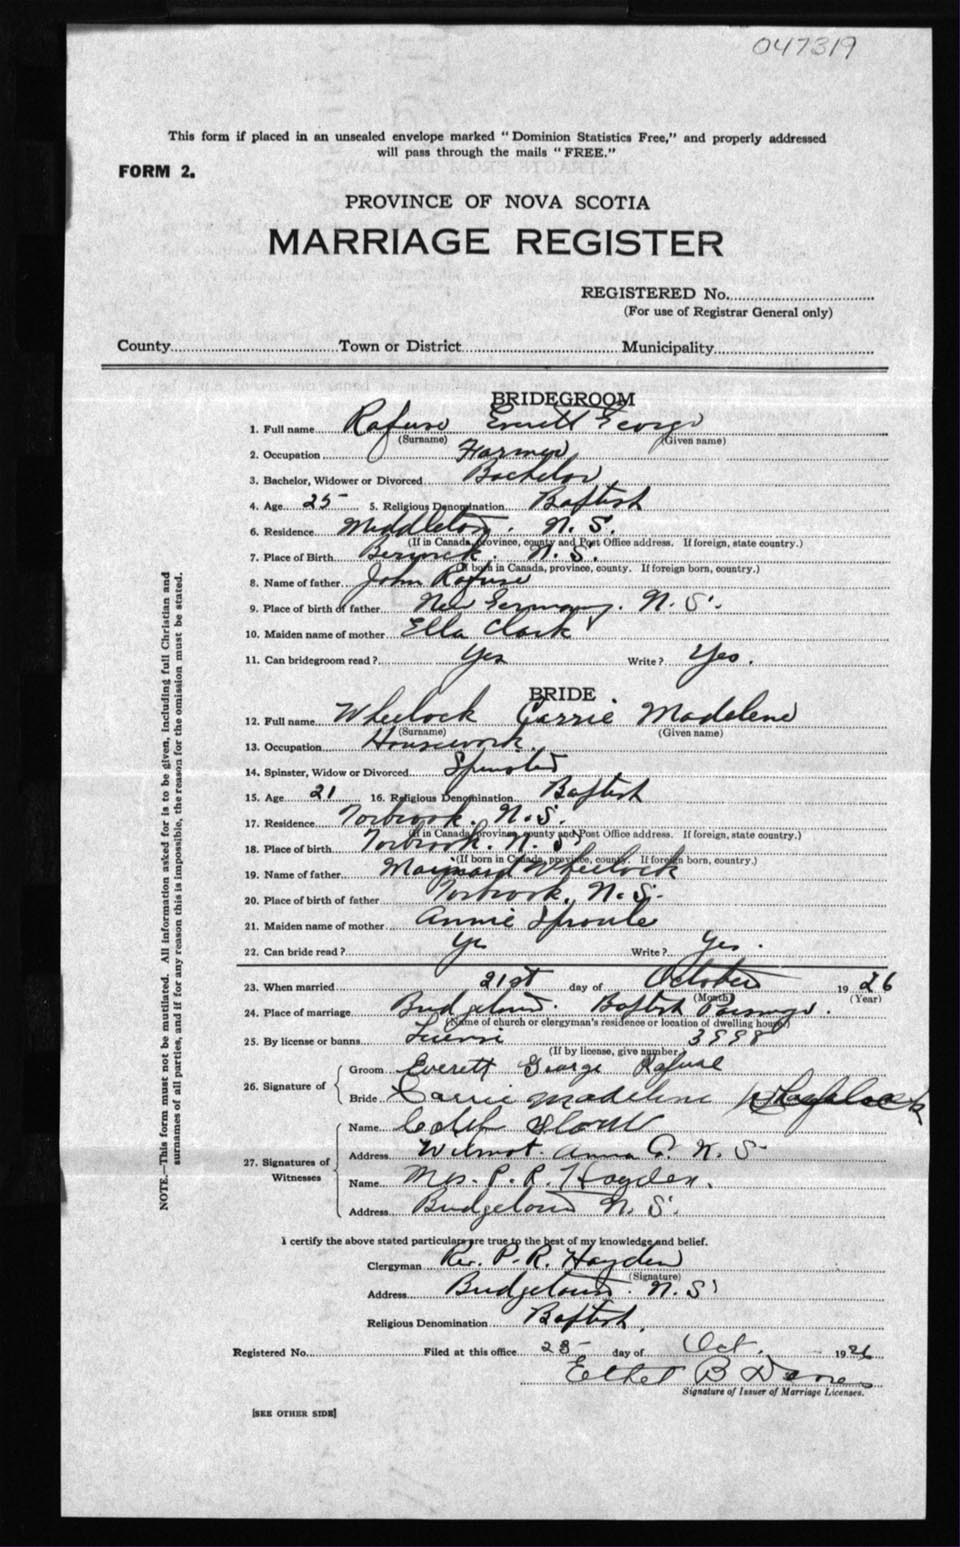 047319
This form if placed in an unsealed envelope marked "Dominion Statistics Free," and properly addressed
will pass through the mails "FREE."
FORM 2.
PROVINCE OF NOVA SCOTIA
MARRIAGE REGISTER
REGISTERED No.
(For use of Registrar General only)
County Town or District Municipality
BRIDEGROOM
1. Full name Rafuse Everett George
(Surname) (Given name)
2. Occupation Farmer
3. Bachelor, Widower or Divorced Bachelor
4. Age 25 5. Religious Denomination Baptist
6. Residence Middleton. N. S.
(If in Canada, province, county and Post Office address. If foreign, state country.)
7. Place of Birth Berwick. N. S.
(If born in Canada, province, county. If foreign born, country.)
8. Name of father John Rafuse
9. Place of birth of father New Germany. N. S.
10. Maiden name of mother Ella Clark
11. Can bridegroom read? Yes Write? Yes.
BRIDE
12. Full name Wheelock Carrie Madelene
(Surname) (Given name)
13. Occupation Housework.
14. Spinster, Widow or Divorced Spinster
15. Age 21 16. Religious Denomination Baptist
17. Residence Torbrook. N. S.
(If in Canada, province, county and Post Office address. If foreign, state country.)
18. Place of birth Torbrook. N. S.
(If born in Canada, province, county. If foreign born, country.)
19. Name of father Maynard Wheelock
20. Place of birth of father Torbrook, N. S.
21. Maiden name of mother Annie Sproule
22. Can bride read? Yes Write? Yes.
23. When married 21st day of October 1926
(Month) (Year)
24. Place of marriage Bridgetown. Baptist Parsonage.
(Name of church or clergyman's residence or location of dwelling house)
25. By license or banns License 3998
(If by license, give number)
26. Signature of
Groom Everett George Rafuse
Bride Carrie Madelene Wheelock
27. Signatures of Witnesses
Name
Address Wilmot. Anna Co. N. S.
Name Mrs. P. R. Hayden.
Address Bridgetown N. S.
I certify the above stated particulars are true to the best of my knowledge and belief.
Clergyman Rev. P. R. Hayden
(Signature)
Address Bridgetown. N. S.
Religious Denomination Baptist.
Registered No. Filed at this office 23 day of Oct. 1926
Ethel B
Signature of Issuer of Marriage Licenses.
[SEE OTHER SIDE]
NOTE.—This form must not be mutilated. All information asked for is to be given, including full Christian and
surnames of all parties, and if for any reason this is impossible, the reason for the omission must be stated.